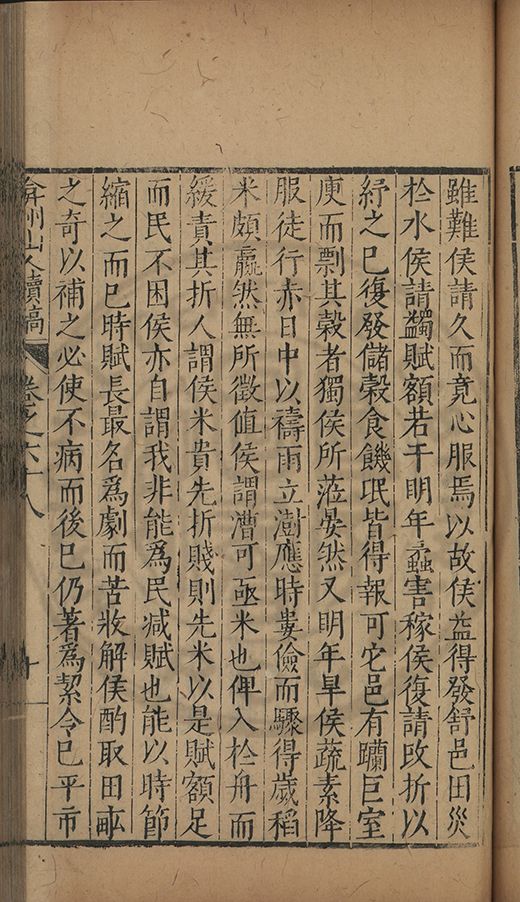 雖難侯請久而竟心服焉以故侯益得發舒邑田災
扵水侯請蠲賦額若干明年蟲害稼侯復請改折以
紓之已復發儲穀食饑氓皆得報可它邑有躪巨室
庾而剽其穀者獨侯所蒞晏然又明年旱侯蔬素降
服徒行赤日中以禱雨立澍應時婁儉而驟得歲稻
米頗羸然無所徵值侯謂漕可亟米也俾入扵舟而
緩責其折人謂侯米貴先折賤則先米以是賦額足
而民不困侯亦自謂我非能為民減賦也能以時節
縮之而已時賦長最名為劇而苦收解侯酌取田畝
之奇以補之必使不病而後已仍著為絜令已平市
弇州山人續稿 卷之六十八 十